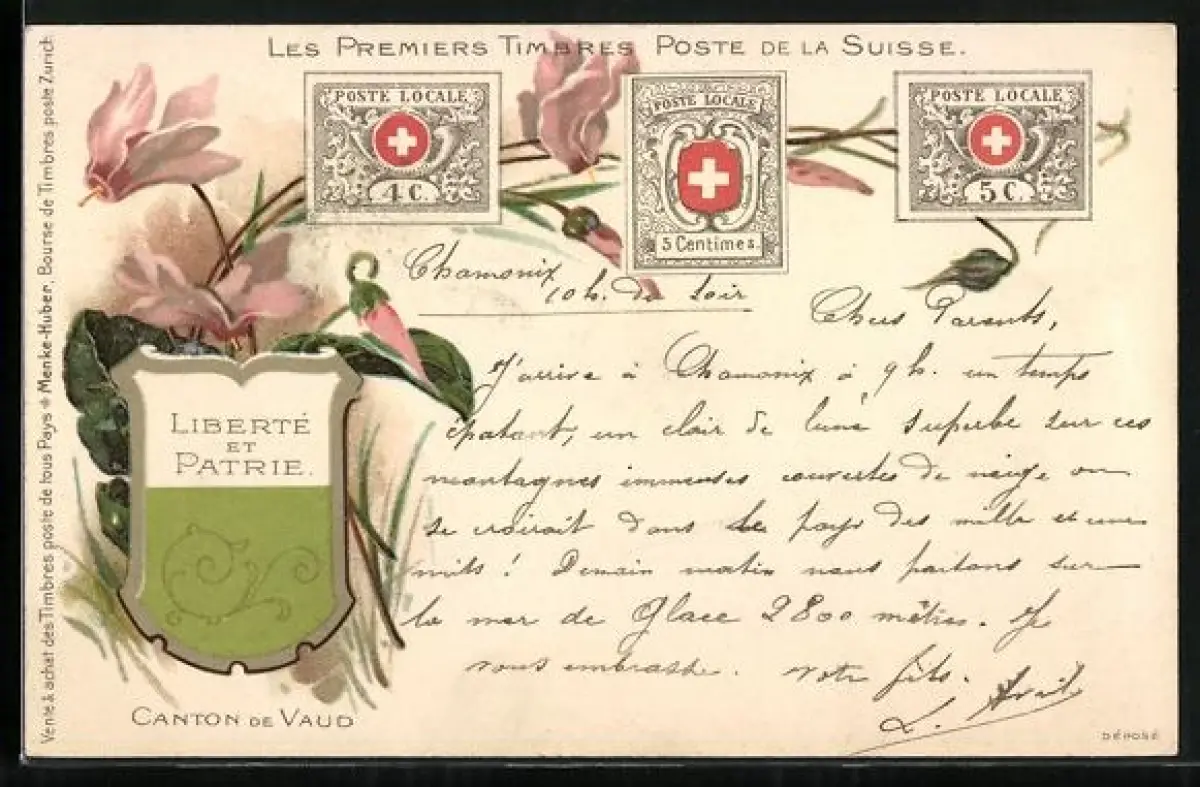 LES PREMIERS TIMBRES POSTE DE LA SUISSE.
POSTE LOCALE
4 C.
POSTE LOCALE
5 Centimes.
POSTE LOCALE
5 C.
Chamonix
10 h. du soir
Chers Parents,
J'arrive à Chamonix à 9 h. un temps
épatant, un clair de lune superbe sur ces
montagnes immenses couvertes de neige on
se croirait dans le pays des mille et une
nuits ! Demain matin nous partons sur
la mer de Glace 2800 mètres. Je
vous embrasse. votre fils.
L.
LIBERTÉ
ET
PATRIE.
CANTON DE VAUD
DÉPOSÉ
Vente & achat des Timbres poste de tous Pays Menke-Huber, Bourse de Timbres poste Zurich